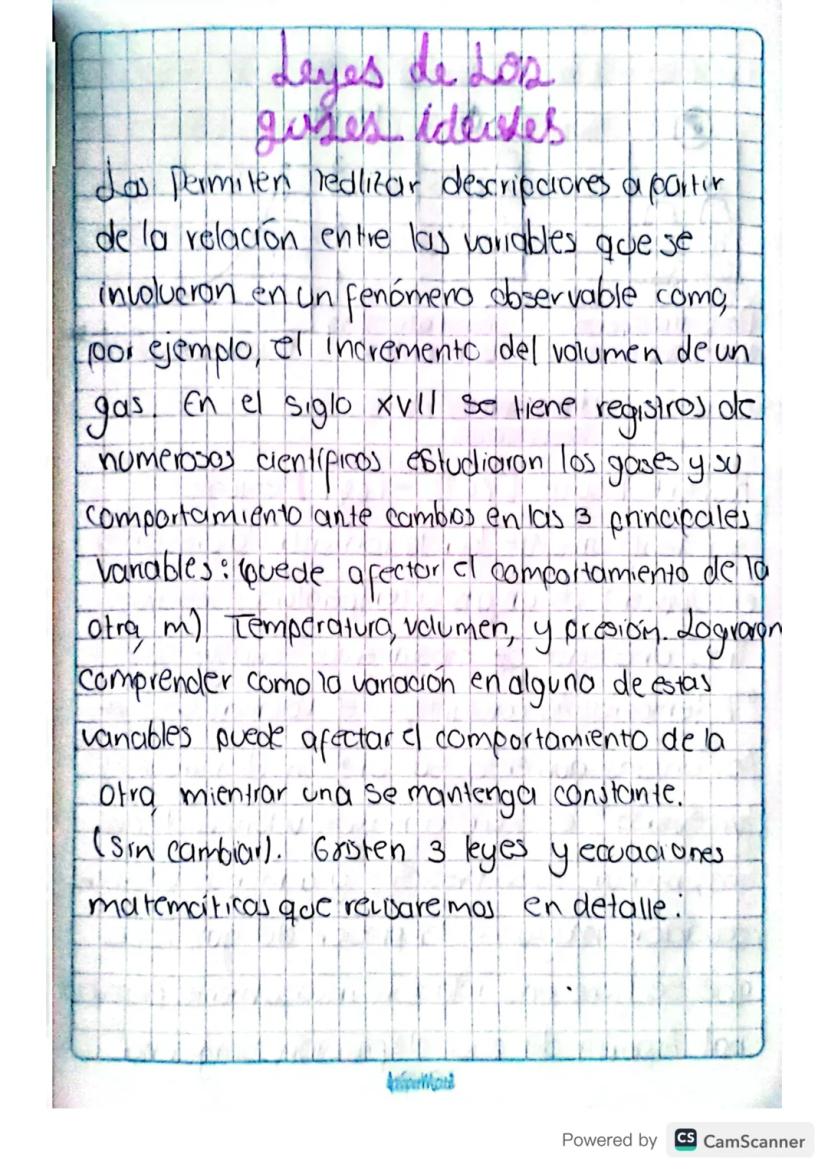 Leyes de Los
gases ideales
Los permiten realizar descripciones a partir
de la relación entre las variables que se
involucran en un fenómeno observable como,
por ejemplo, el incremento del volumen de un
gas. En el siglo XVII se tiene registros de
numerosos científicos estudiaron los gases y su
comportamiento ante cambos en las 3 principales
variables: (puede afectar el comportamiento de la
otra, m) Temperatura, volumen, y presión. Lograron
comprender como la variación en alguno de estas
variables puede afectar el comportamiento de la
otra, mientrar una se mantenga constante.
(Sin cambiar). Existen 3 leyes y ecuaciones
matemáticas que revisaremos en detalle:
Powered by CS CamScanner